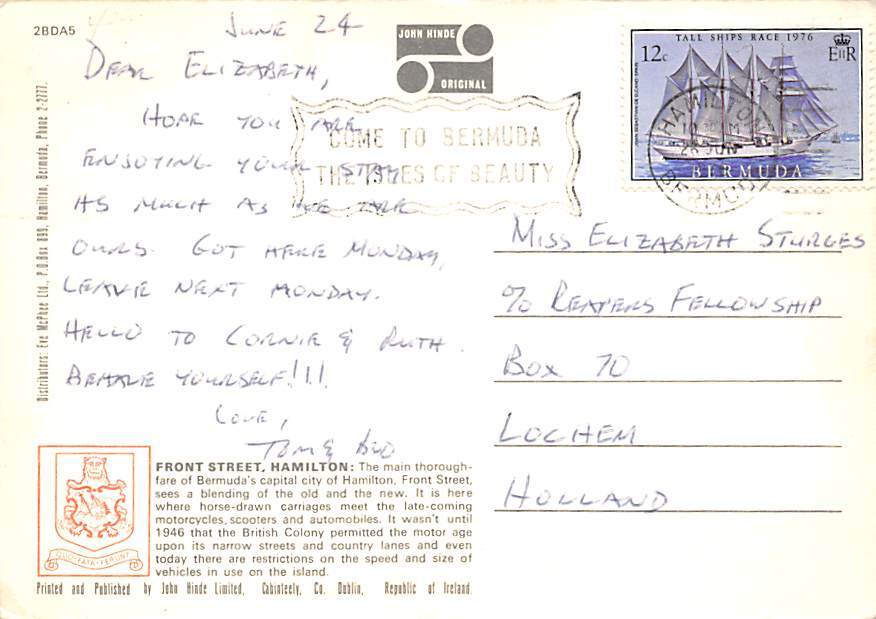 2BDA5
June 24
JOHN HINDE
ORIGINAL
TALL SHIPS RACE 1976
12c
EIIR
BERMUDA
HAMILTON
JUN
BERMUDA
COME TO BERMUDA
THE ISLES OF BEAUTY
DEAR ELIZABETH,
HOPE YOU ARE
ENJOYING YOUR STAY
AS MUCH AS WE ARE
OURS. GOT HERE MONDAY,
LEAVE NEXT MONDAY.
HELLO TO CORNIE & RUTH.
BEHAVE YOURSELF!!!
LOVE,
TOM &
MISS ELIZABETH STURGES
% REAPERS FELLOWSHIP
BOX 70
LOCHEM
HOLLAND
Distributors: Eve McPhee Ltd., P.O.Box 899, Hamilton, Bermuda, Phone 2-2777.
QUO FATA FERUNT
FRONT STREET, HAMILTON: The main thorough-
fare of Bermuda's capital city of Hamilton, Front Street,
sees a blending of the old and the new. It is here
where horse-drawn carriages meet the late-coming
motorcycles, scooters and automobiles. It wasn't until
1946 that the British Colony permitted the motor age
upon its narrow streets and country lanes and even
today there are restrictions on the speed and size of
vehicles in use on the island.
Printed and Published by John Hinde Limited, Cabinteely, Co. Dublin, Republic of Ireland.